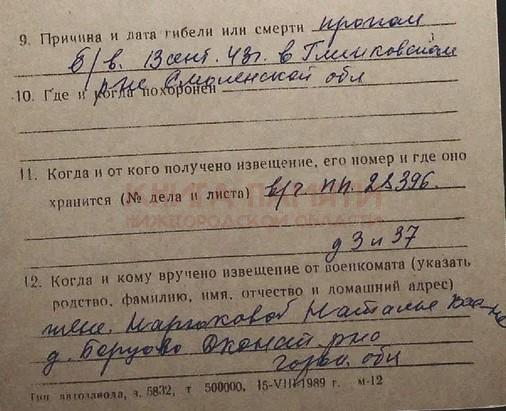 9. Причина и дата гибели или смерти пропал
б/в. 13 сент. 43г. в Глинковском
р-не Смоленской обл
10. Где и когда похоронен
11. Когда и от кого получено извещение, его номер и где оно
хранится (№ дела и листа) в/ч пп. 28396.
КНИГА ПАМЯТИ
НИЖЕГОРОДСКОЙ ОБЛАСТИ
д 3 л 37
12. Когда и кому вручено извещение от военкомата (указать
родство, фамилию, имя, отчество и домашний адрес)
жене. Наталье
д. р-но
горьк. обл
Тип. автозавода, з. 5832, т 500000, 15-VIII-1989 г. м-12